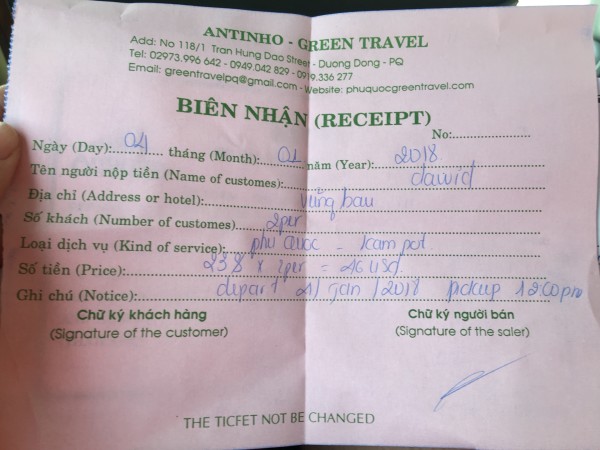 ANTINHO - GREEN TRAVEL
Add: No 118/1 Tran Hung Dao Street - Duong Dong - PQ
Tel: 02973.996 642 - 0949.042 829 - 0919.336 277
Email: greentravelpq@gmail.com - Website: phuquocgreentravel.com
BIÊN NHẬN (RECEIPT)
No:
Ngày (Day): 04 tháng (Month): 01 năm (Year): 2018
Tên người nộp tiền (Name of customes): dawid
Địa chỉ (Address or hotel): vũng bau
Số khách (Number of customes). 2per
Loại dịch vụ (Kind of service): phu quoc - kam pot
Số tiền (Price): 23$ x 2per = 46 usd.
Ghi chú (Notice): depart 21/ Jan / 2018 pickup 1200pm
Chữ ký khách hàng Chữ ký người bán
(Signature of the customer) (Signature of the saler)
THE TICFET NOT BE CHANGED